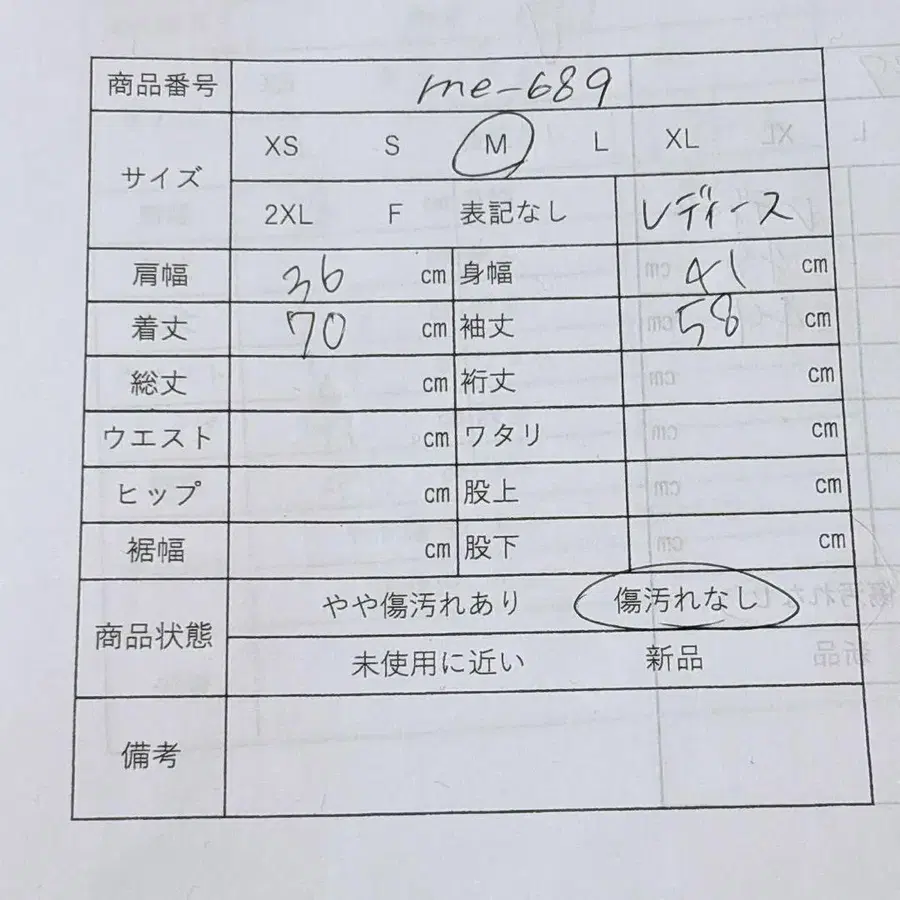 商品番号 me-689
サイズ XS S M L XL
2XL F 表記なし レディース
肩幅 36 cm 身幅 41 cm
着丈 70 cm 袖丈 58 cm
総丈 cm 裄丈 cm
ウエスト cm ワタリ cm
ヒップ cm 股上 cm
裾幅 cm 股下 cm
商品状態 やや傷汚れあり 傷汚れなし
未使用に近い 新品
備考